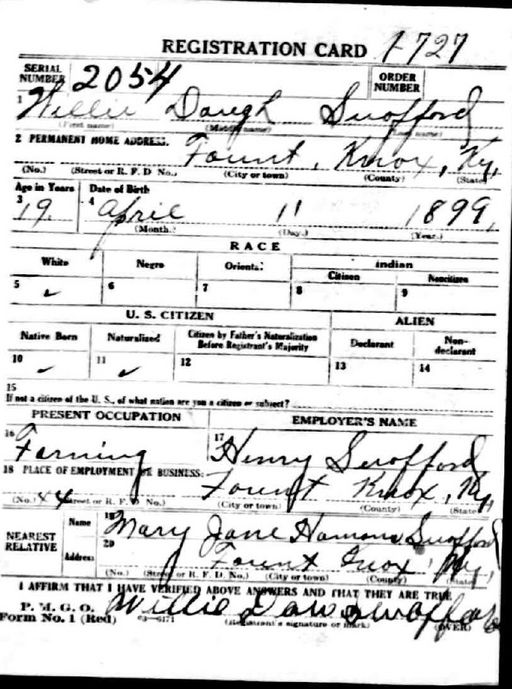 REGISTRATION CARD 1-727
SERIAL NUMBER 2054 ORDER NUMBER
1 Willie Daugh Swofford
(First name) (Middle name) (Last name)
2 PERMANENT HOME ADDRESS.
Fount, Knox, Ky,
(No.) (Street or R. F. D No.) (City or town) (County) (State)
Age in Years Date of Birth
3 19, 4 April 11 1899,
(Month.) (Day.) (Year.)
RACE
White Negro Oriental Indian
Citizen Noncitizen
5 ✓ 6 7 8 9
U. S. CITIZEN ALIEN
Native Born Naturalized Citizen by Father's Naturalization Before Registrant's Majority Declarant Non-declarant
10 ✓ 11 ✓ 12 13 14
15
If not a citizen of the U. S., of what nation are you a citizen or subject?
PRESENT OCCUPATION EMPLOYER'S NAME
16 Farming 17 Henry Swofford
18 PLACE OF EMPLOYMENT OR BUSINESS:
Fount Knox, Ky,
(No.) (Street or R. F. D No.) (City or town) (County) (State)
NEAREST RELATIVE
Name 19 Mary Jane Swofford
Address 20 Fount Knox Ky,
(No.) (Street or R. F. D. No.) (City or town) (County) (State)
I AFFIRM THAT I HAVE VERIFIED ABOVE ANSWERS AND THAT THEY ARE TRUE
P. M. G. O.
Form No. 1 (Red) 03-6171 Willie Swofford
(Registrant's signature or mark) (OVER)